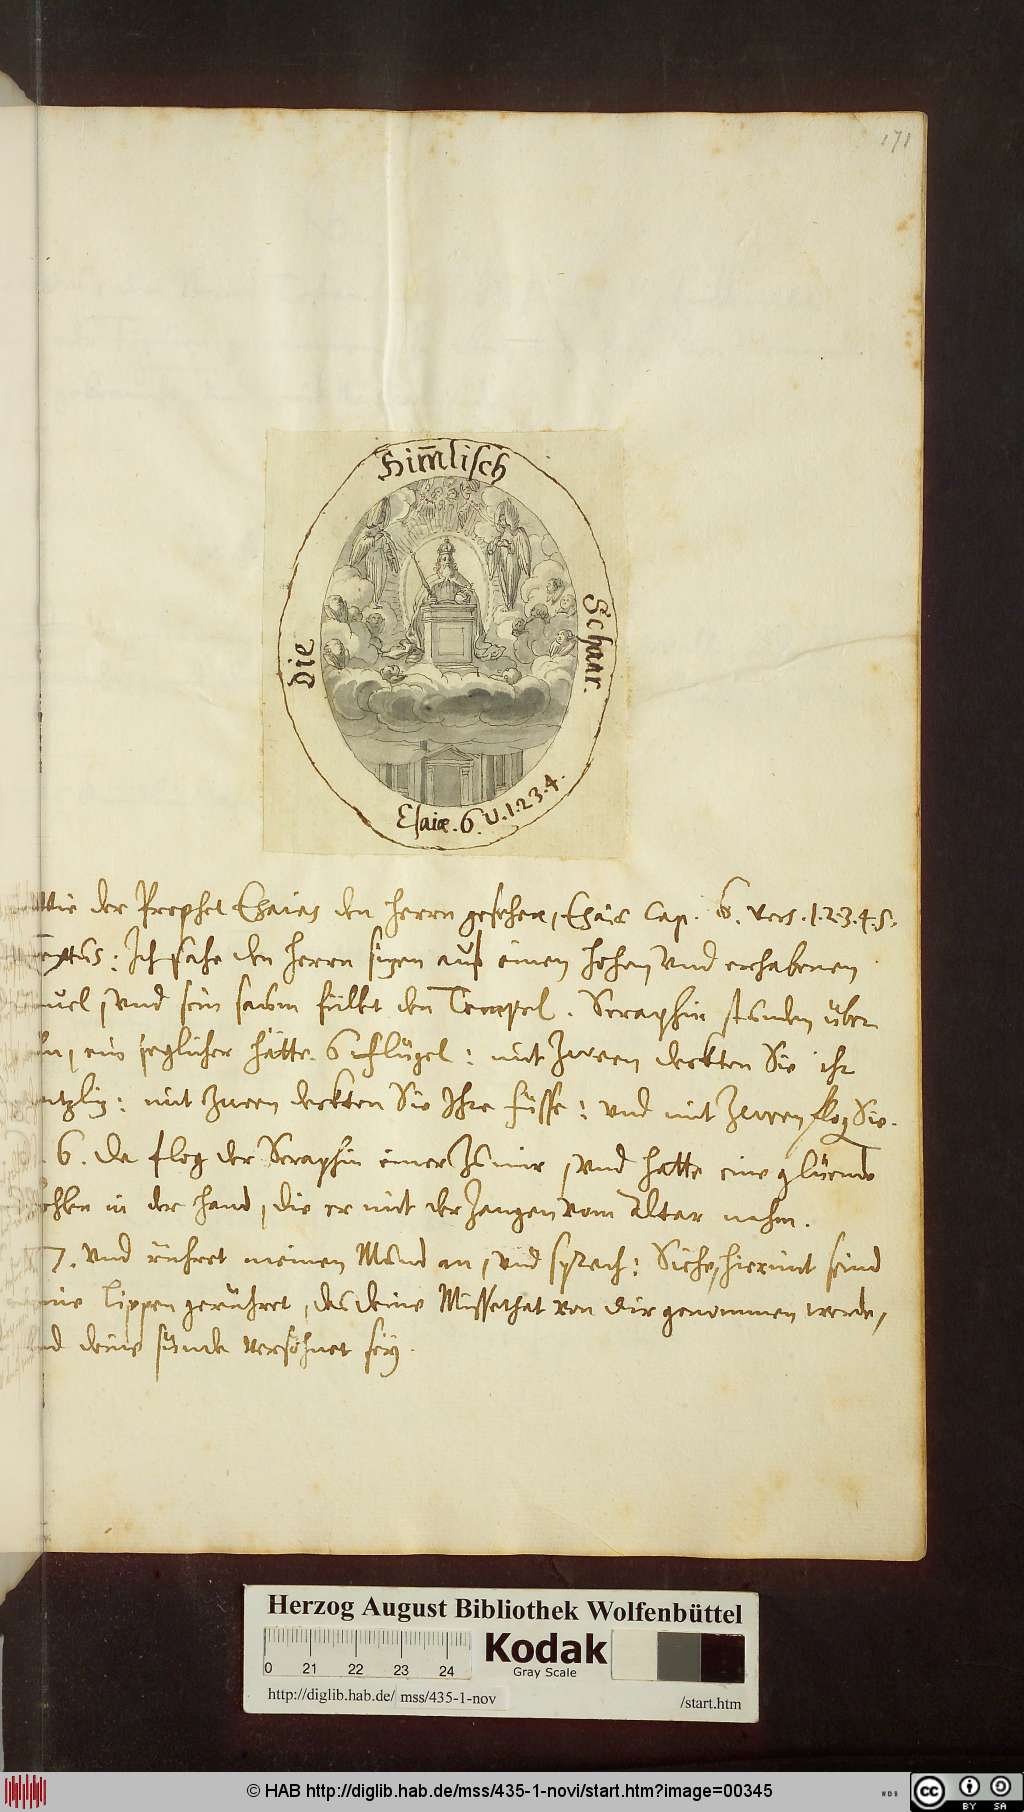 171
Him̄lisch
Die
Schaar.
Esaiæ. 6. V. 1. 2. 3. 4.
Wie der Prophet Esaias den Herrn gesehen, Esaiæ Cap. 6. vers. 1. 2. 3. 4. 5.
Textus: Ich sahe den Herrn sizen auf einen hohen, vnd erhabenen
vnd sein saum füllet den Tempel. Seraphin stunden über
ein jeglicher hätte 6 Flügel: mit zween deckten Sie ihr
mit zween deckten Sie Ihre füsse: vnd mit zween flog Sie.
6. Da flog der Seraphin einer zu mir, vnd hatte eine glüende
in der hand, die er mit der Zangen vom Altar nahm.
7. vnd rühret meinen Mund an, vnd sprach: Siehe, hiermit seind
Lippen gerühret, das deine Missethat von dir genommen werde,
deine sünde versöhnet sey.
Herzog August Bibliothek Wolfenbüttel
0 21 22 23 24
Kodak
Gray Scale
http://diglib.hab.de/ mss/435-1-nov /start.htm
© HAB http://diglib.hab.de/mss/435-1-novi/start.htm?image=00345
WDB
cc BY SA